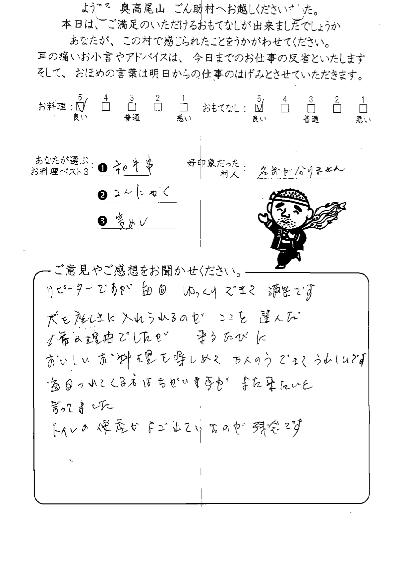 ようこそ 奥高尾山 ごん助村へお越しくださいました。
本日は、ご満足のいただけるおもてなしが出来ましたでしょうか
あなたが、この村で感じられたことをうかがわせてください。
耳の痛いお小言やアドバイスは、今日までのお仕事の反省といたします
そして、おほめの言葉は明日からの仕事のはげみとさせていただきます。
お料理: 5 4 3 2 1 おもてなし: 5 4 3 2 1
良い 普通 悪い 良い 普通 悪い
あなたが選ぶ お料理ベスト3: ❶ 和牛
❷ こんにゃく
❸ 麦めし
好印象だった 村人 名前が分りません
ご意見やご感想をお聞かせください。
リピーターですが 毎回 ゆっくりできて 満足です
犬を座しきに入れられるのが ここを 選んだ
1番の理由でしたが 来るたびに
おいしい お料理を楽しめて うれしいです
毎回つれてくる方はちがいますが また来たいと
言ってました
トイレの 便座が 残念です